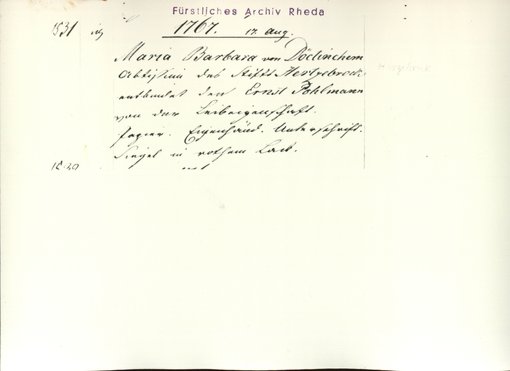 Fürstliches Archiv Rheda
1831 1767. 17. Aug.
Maria Barbara von Döclinchem
Äbtissin des Stifts Hertzebrock
entbindet den Ernst Pohlmann
von der Leibeigenschaft.
Papier. Eigenhänd. Unterschrift.
Siegel in rothem Lack.